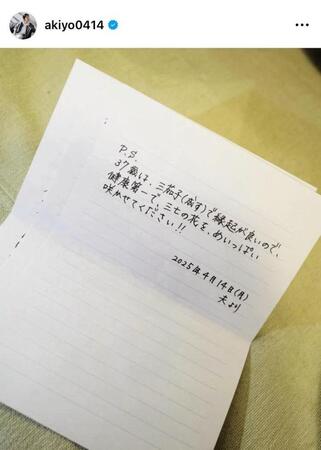 akiyo0414
P.S.
37歳は、三茄子(成す)で縁起が良いので、
健康第一で、三七の花を、めいっぱい
咲かせてください!!
2025年4月14日(月)
夫より